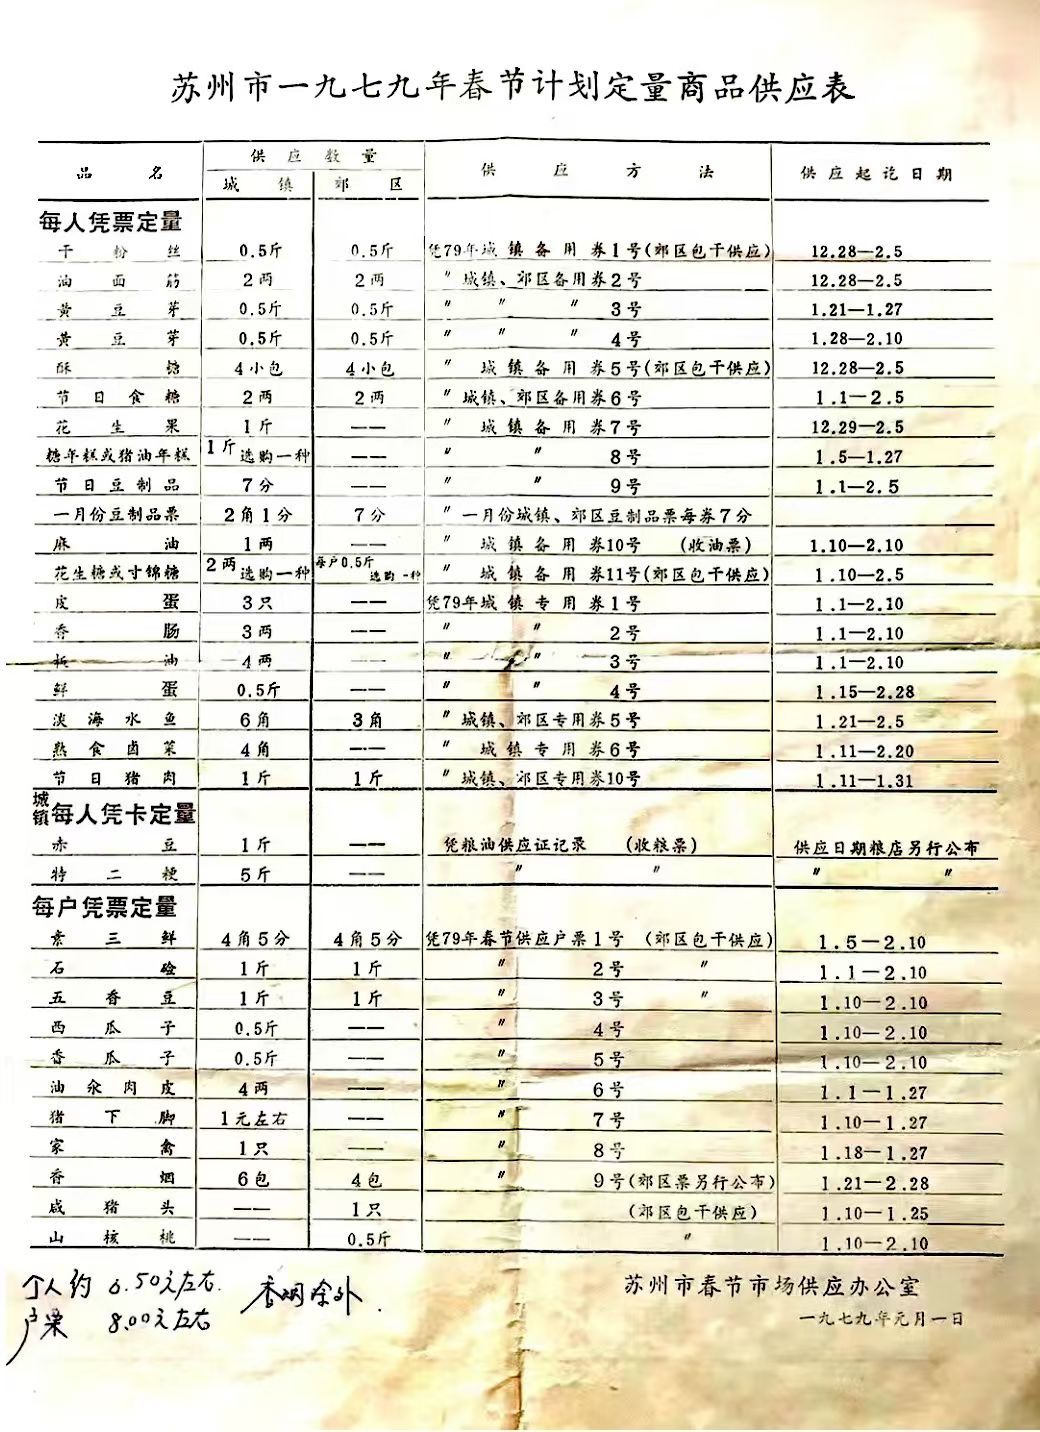 苏州市一九七九年春节计划定量商品供应表
品名 供应数量 供应方法 供应起讫日期
城镇 郊区
每人凭票定量
干粉丝 0.5斤 0.5斤 凭79年城镇备用券1号(郊区包干供应) 12.28—2.5
油面筋 2两 2两 〃 城镇、郊区备用券2号 12.28—2.5
黄豆芽 0.5斤 0.5斤 〃 〃 〃 3号 1.21—1.27
黄豆芽 0.5斤 0.5斤 〃 〃 〃 4号 1.28—2.10
酥糖 4小包 4小包 〃 城镇备用券5号(郊区包干供应) 12.28—2.5
节日食糖 2两 2两 〃 城镇、郊区备用券6号 1.1—2.5
花生果 1斤 —— 〃 城镇备用券7号 12.29—2.5
糖年糕或猪油年糕 1斤选购一种 —— 〃 〃 8号 1.5—1.27
节日豆制品 7分 —— 〃 〃 9号 1.1—2.5
一月份豆制品票 2角1分 7分 〃 一月份城镇、郊区豆制品票每券7分
麻油 1两 —— 〃 城镇备用券10号 (收油票) 1.10—2.10
花生糖或寸锦糖 2两选购一种 每户0.5斤选购一种 〃 城镇备用券11号(郊区包干供应) 1.10—2.5
皮蛋 3只 —— 凭79年城镇专用券1号 1.1—2.10
香肠 3两 —— 〃 〃 2号 1.1—2.10
板油 4两 —— 〃 〃 3号 1.1—2.10
鲜蛋 0.5斤 —— 〃 〃 4号 1.15—2.28
淡海水鱼 6角 3角 〃 城镇、郊区专用券5号 1.21—2.5
熟食卤菜 4角 —— 〃 城镇专用券6号 1.11—2.20
节日猪肉 1斤 1斤 〃 城镇、郊区专用券10号 1.11—1.31
城镇每人凭卡定量
赤豆 1斤 —— 凭粮油供应证记录 (收粮票) 供应日期粮店另行公布
特二粳 5斤 —— 〃 〃 〃 〃
每户凭票定量
素三鲜 4角5分 4角5分 凭79年春节供应户票1号 (郊区包干供应) 1.5—2.10
石碱 1斤 1斤 〃 2号 〃 1.1—2.10
五香豆 1斤 1斤 〃 3号 〃 1.10—2.10
西瓜子 0.5斤 —— 〃 4号 1.10—2.10
香瓜子 0.5斤 —— 〃 5号 1.10—2.10
油汆肉皮 4两 —— 〃 6号 1.1—1.27
猪下脚 1元左右 —— 〃 7号 1.10—1.27
家禽 1只 —— 〃 8号 1.18—1.27
香烟 6包 4包 〃 9号(郊区票另行公布) 1.21—2.28
咸猪头 —— 1只 (郊区包干供应) 1.10—1.25
山核桃 —— 0.5斤 〃 1.10—2.10
个人约 6.50元左右. 香烟除外.
户票 8.00元左右
苏州市春节市场供应办公室
一九七九年元月一日